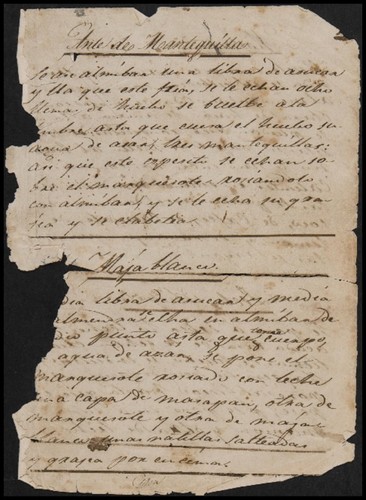 Ante de Mantequilla
se en almibar una libra de azucar
y lla que este frio, se le echan ocho
llemas de huebo se buelbe a la
lumbre asta que cusa el huebo su
agua de azar, tres mantequillas;
asi que este espesito se echan so-
bre el marquisote rosiandolo
con almibar, y se le echa su gra-
gea y se
Maja blanca.
dia libra de azucar y media
almendra echa en almibar de
dio punto asta que cuerpo,
toma
agua de azar, se pone el
marquisote rosiado con leche
una capa de marapan, otra de
marquisote y otra de majar
blanco unas natillas salteadas
y grajea por encima.